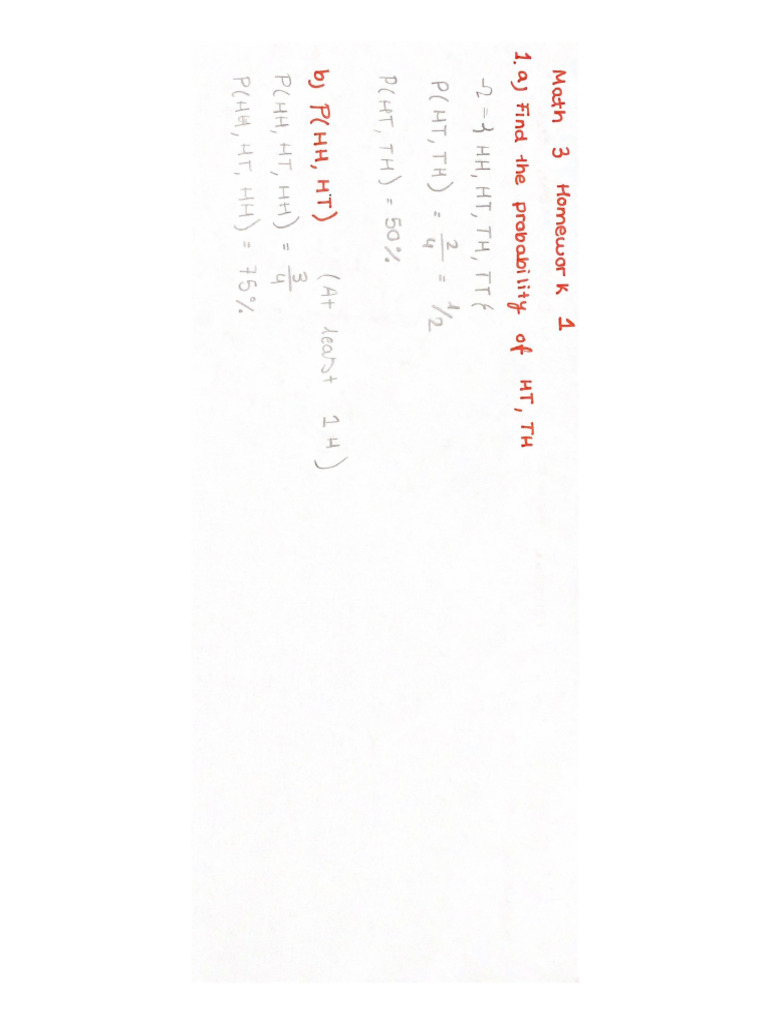 Math 3 Homework 1
1. a) Find the probability of HT, TH
Ω = { HH, HT, TH, TT {
P(HT, TH) = 2/4 = 1/2
P(HT, TH) = 50%
b) P(HH, HT) (At least 1 H)
P(HH, HT, HH) = 3/4
P(HH, HT, HH) = 75%